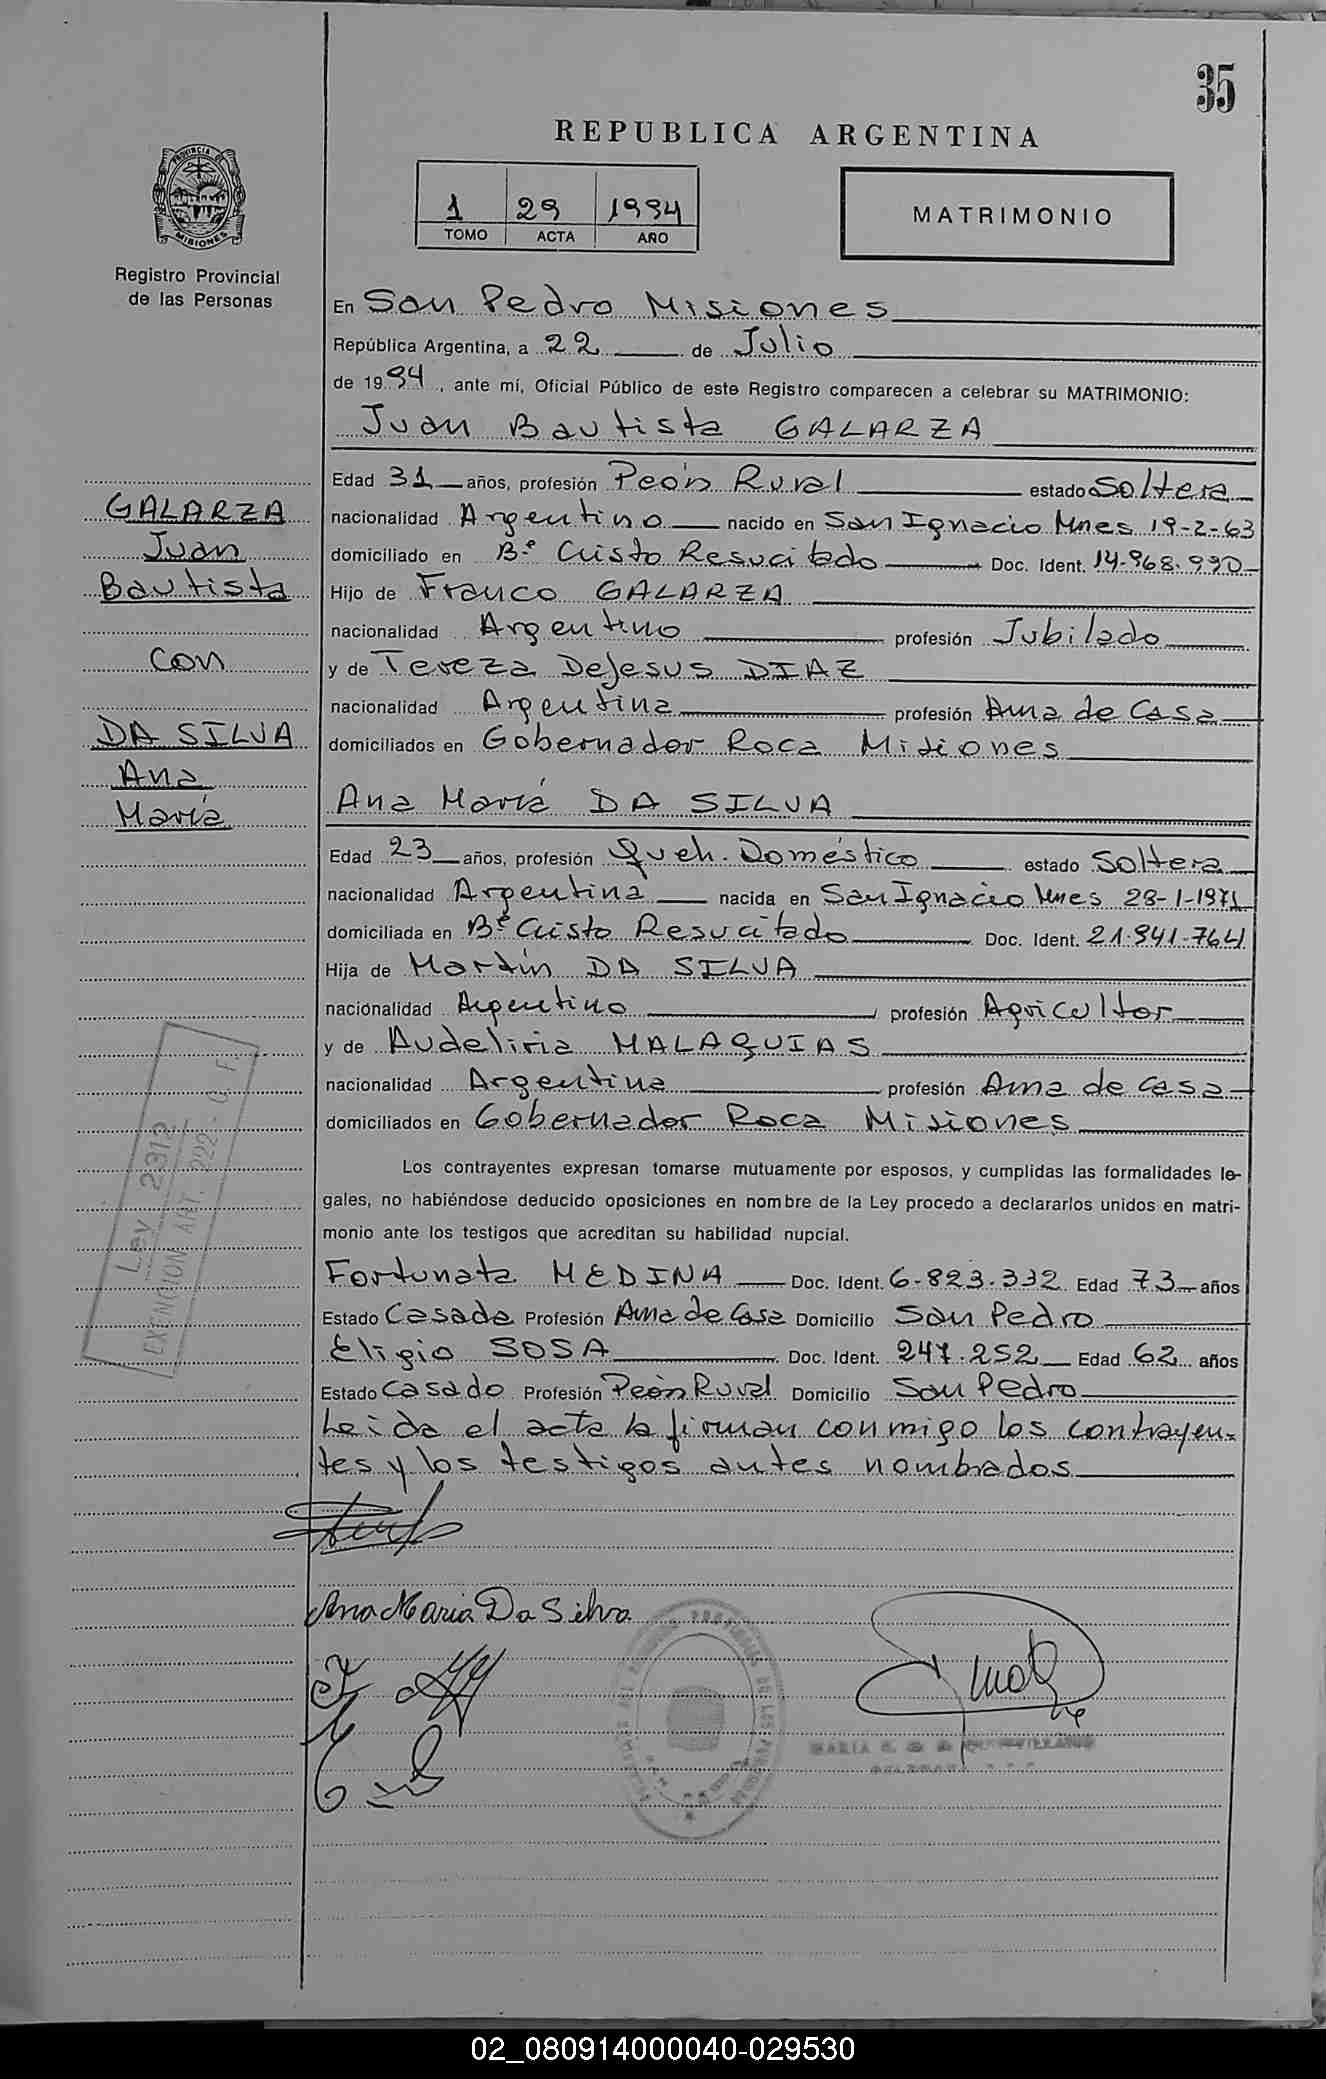 35
REPUBLICA ARGENTINA
1 29 1994
TOMO ACTA AÑO
MATRIMONIO
PROVINCIA DE MISIONES
Registro Provincial
de las Personas
En San Pedro Misiones
República Argentina, a 22 de Julio
de 1994, ante mí, Oficial Público de este Registro comparecen a celebrar su MATRIMONIO:
Juan Bautista GALARZA
Edad 31 años, profesión Peón Rural estado Soltera
nacionalidad Argentino nacido en San Ignacio Mnes 19-2-63
domiciliado en Bº Cristo Resucitado Doc. Ident. 14.968.990
Hijo de Franco GALARZA
nacionalidad Argentino profesión Jubilado
y de Tereza DeJesus DIAZ
nacionalidad Argentina profesión Ama de Casa
domiciliados en Gobernador Roca Misiones
GALARZA
Juan
Bautista
con
DA SILVA
Ana
María
Ana María DA SILVA
Edad 23 años, profesión Queh. Doméstico estado Soltera
nacionalidad Argentina nacida en San Ignacio Mnes 28-1-1971
domiciliada en Bº Cristo Resucitado Doc. Ident. 21.941.764
Hija de Martín DA SILVA
nacionalidad Argentino profesión Agricultor
y de Audeliria MALAQUIAS
nacionalidad Argentina profesión Ama de Casa
domiciliados en Gobernador Roca Misiones
Ley 2312
EXENCION ART. 222 - C. F.
Los contrayentes expresan tomarse mutuamente por esposos, y cumplidas las formalidades le-
gales, no habiéndose deducido oposiciones en nombre de la Ley procedo a declararlos unidos en matri-
monio ante los testigos que acreditan su habilidad nupcial.
Fortunata MEDINA Doc. Ident. 6.823.332 Edad 73 años
Estado Casada Profesión Ama de Casa Domicilio San Pedro
Eligio SOSA Doc. Ident. 247.252 Edad 62 años
Estado Casado Profesión Peón Rural Domicilio San Pedro
Leida el acta la firman conmigo los contrayen=
tes y los testigos antes nombrados
Ana Maria Da Silva
MARIA
02_080914000040-029530